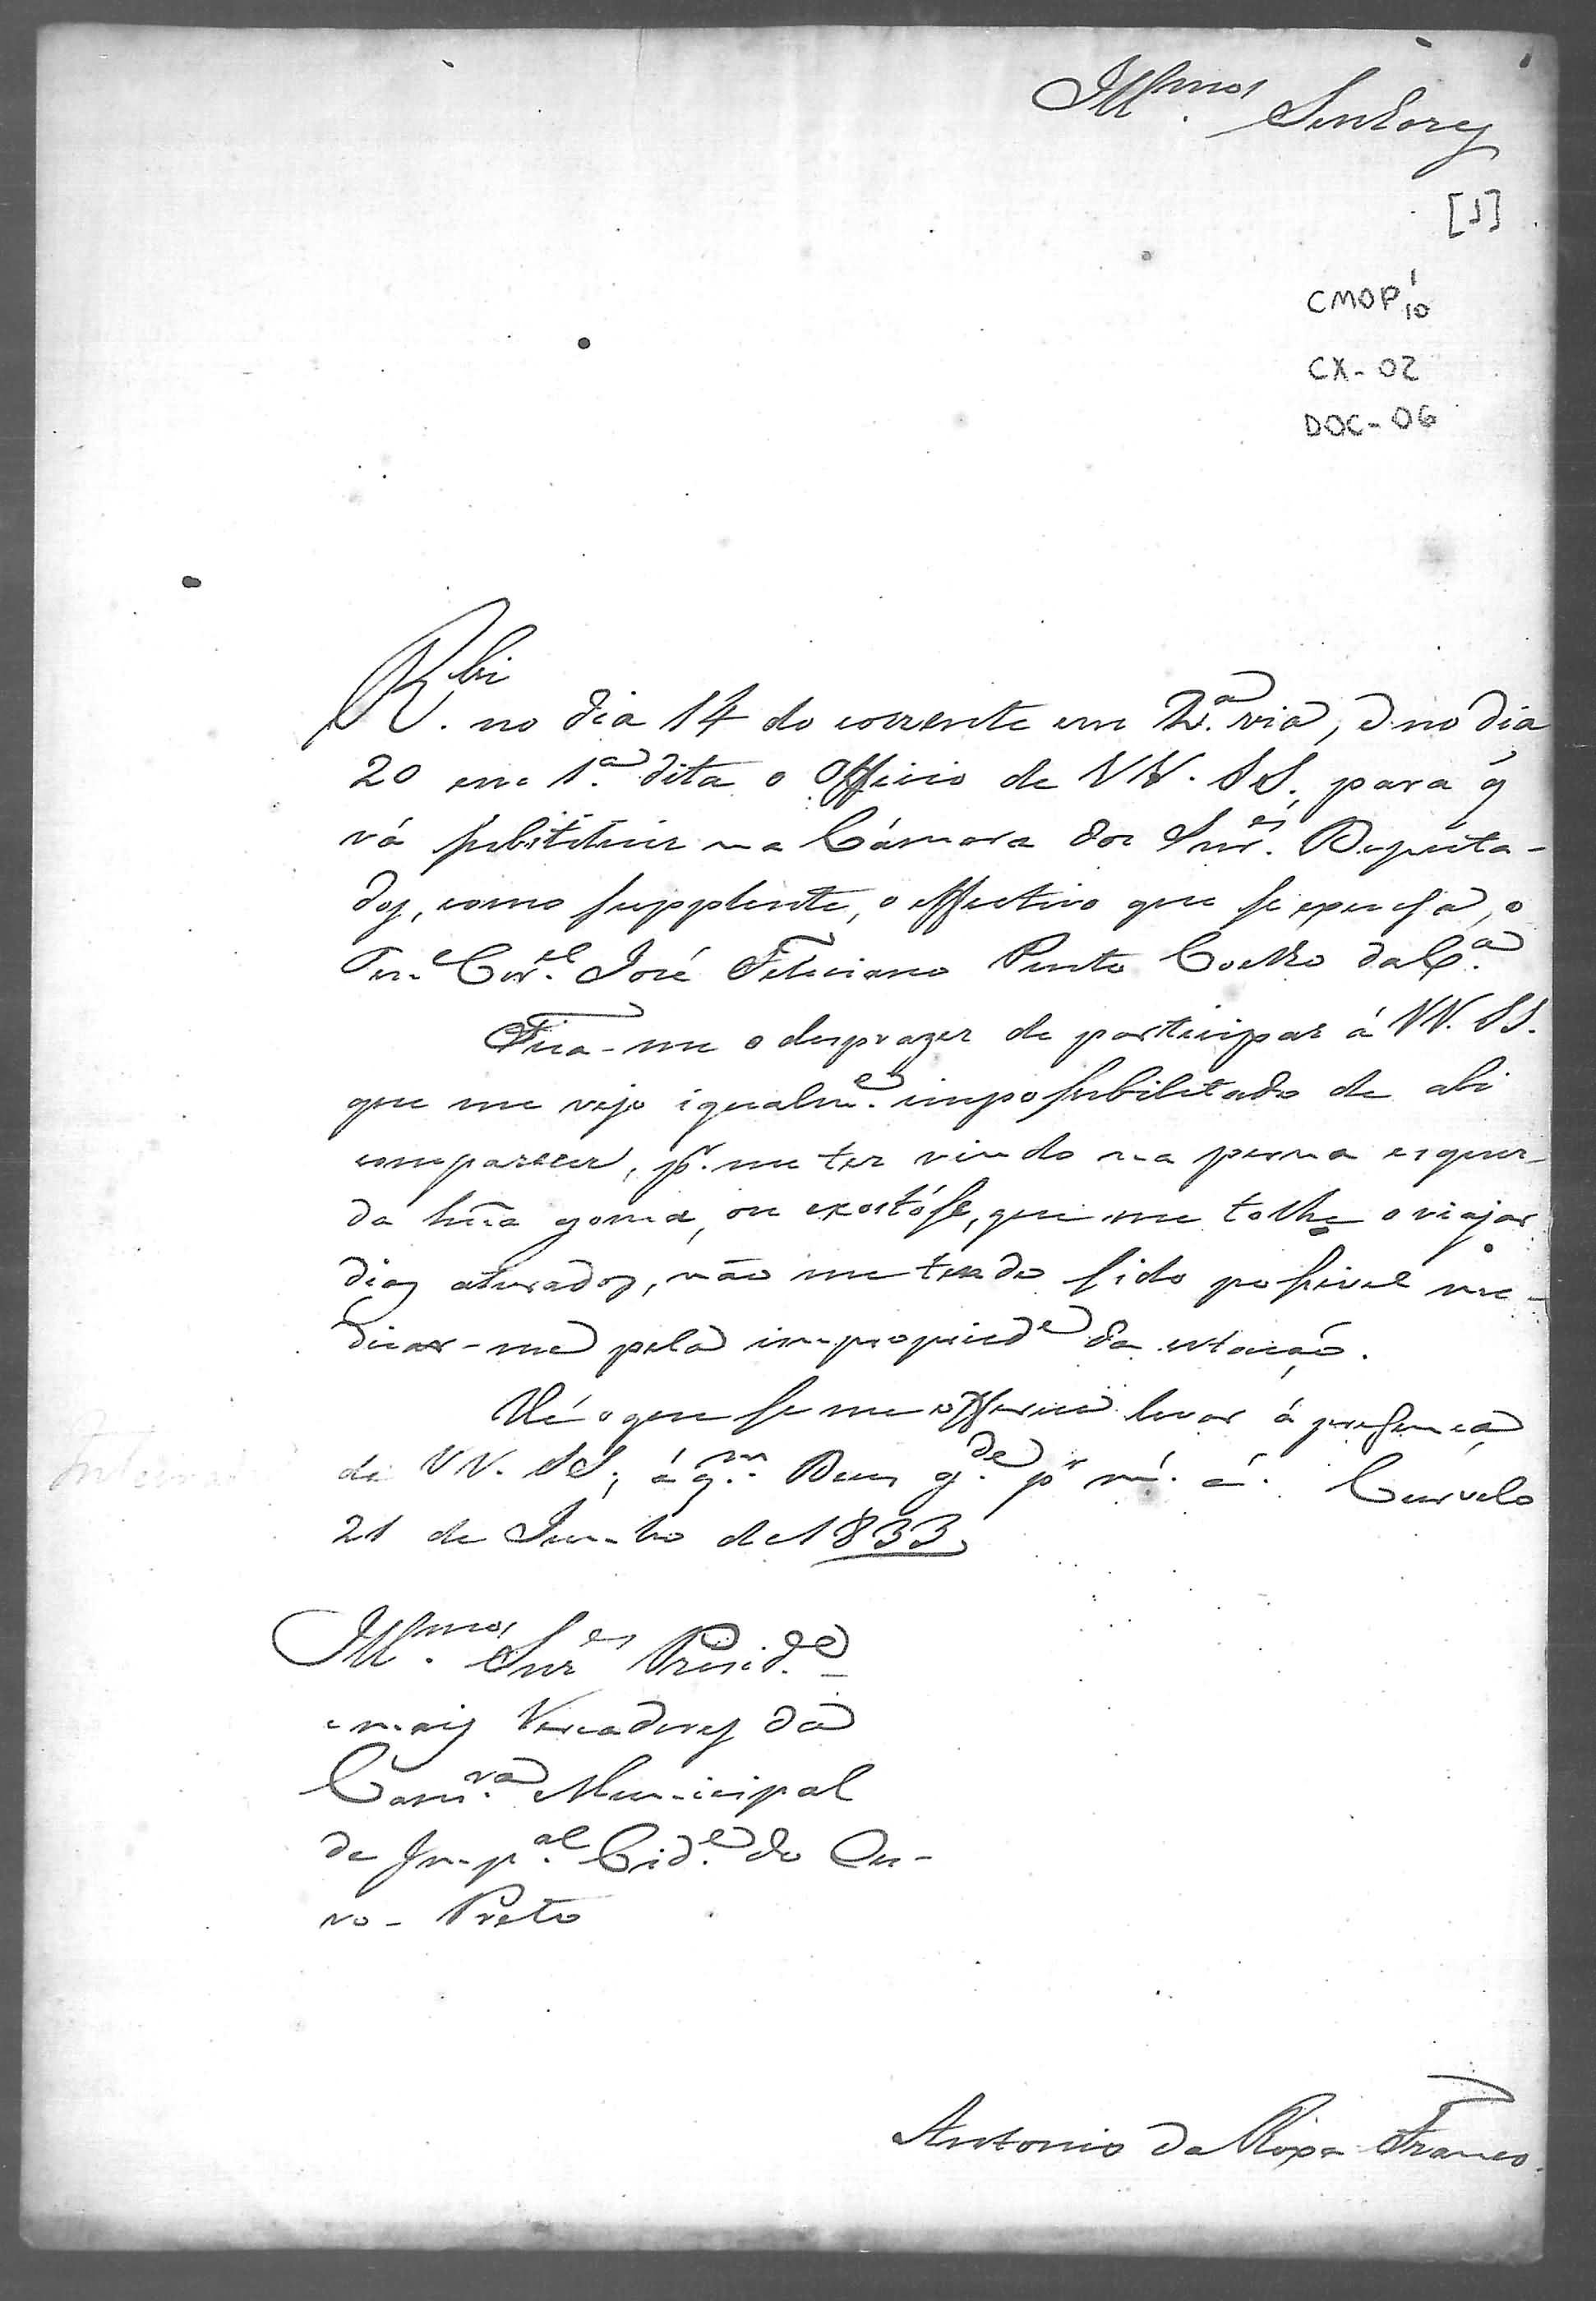 Ill.mos Senhores
[1]
CMOP 1/10
CX-02
DOC-06
R.bi no dia 14 do corrente em 2.a via, e no dia
20 em 1.a dita o Officio de VV. SS., para q̃
vá substituir na Câmara dos Snr.es Deputa-
dos, como supplente, o effectivo que se excusa, o
Ten.e Cor.el José Feliciano Pinto Coelho da C.a
Fica-me o desprazer de participar á VV. SS.
que me vejo igualm.e impossibilitado de ahi
comparecer, p.r me ter vindo na perna esquer-
da hũa goma, ou exostóse, que me tolhe o viajar
dias aturados, não me tendo sido possivel me-
dicar-me pela impropried.e da estação.
Hé o que se me offerece levar á presença
de VV. SS., á q.m Deus g.de p.r m.s a.s Curvelo
21 de Junho de 1833
Ill.mos Snr.es Presid.e
e mais Vereadores da
Cam.ra Municipal
da Imp.al Cid.e do Ou-
ro-Preto
Antonio da Roxa Franco.